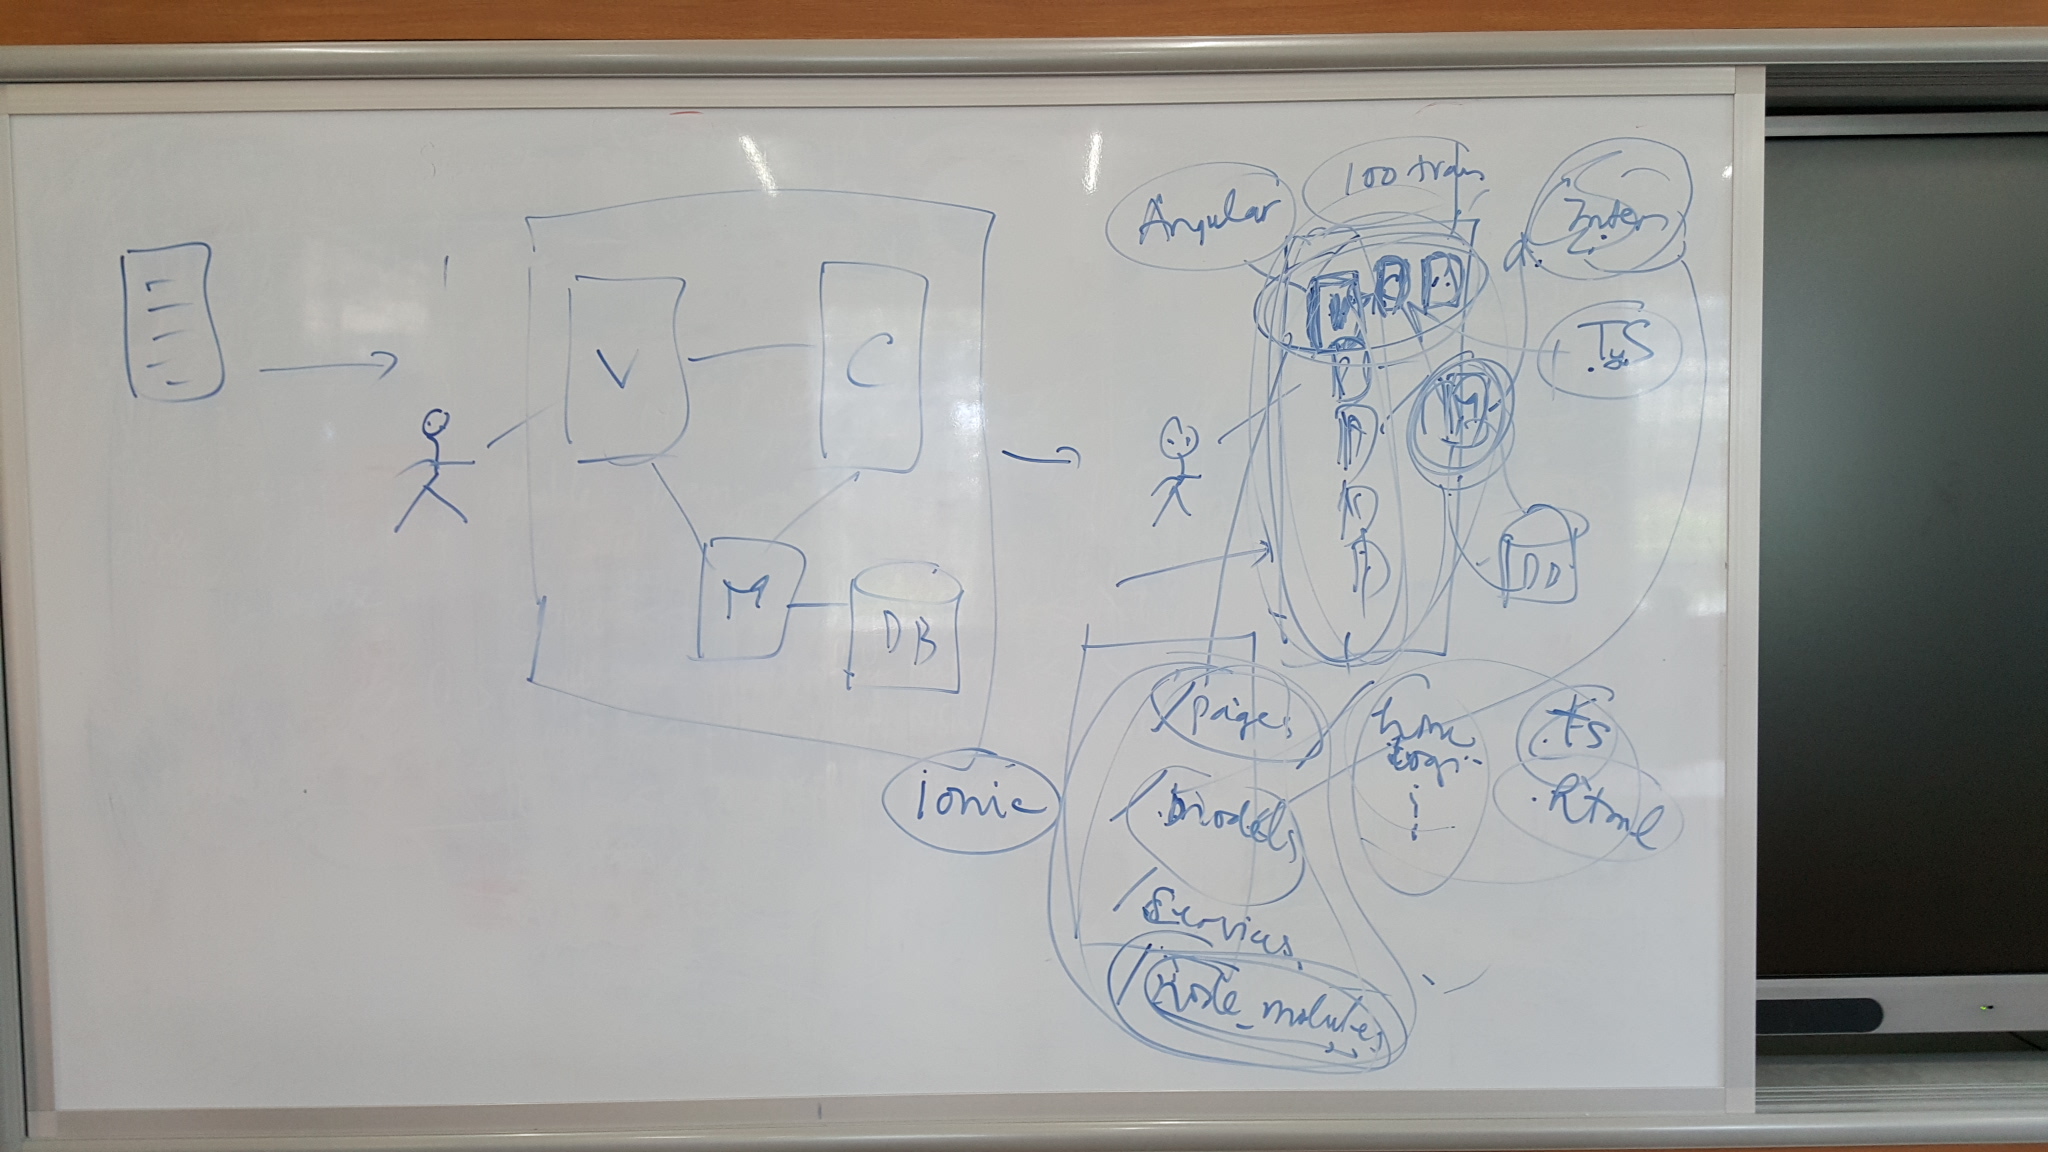 V
C
M
DB
ionic
Angular
100 tran
Inter
T.S
M
DB
/pages
/models
/Services
/Node_modules
home
.ts
.html